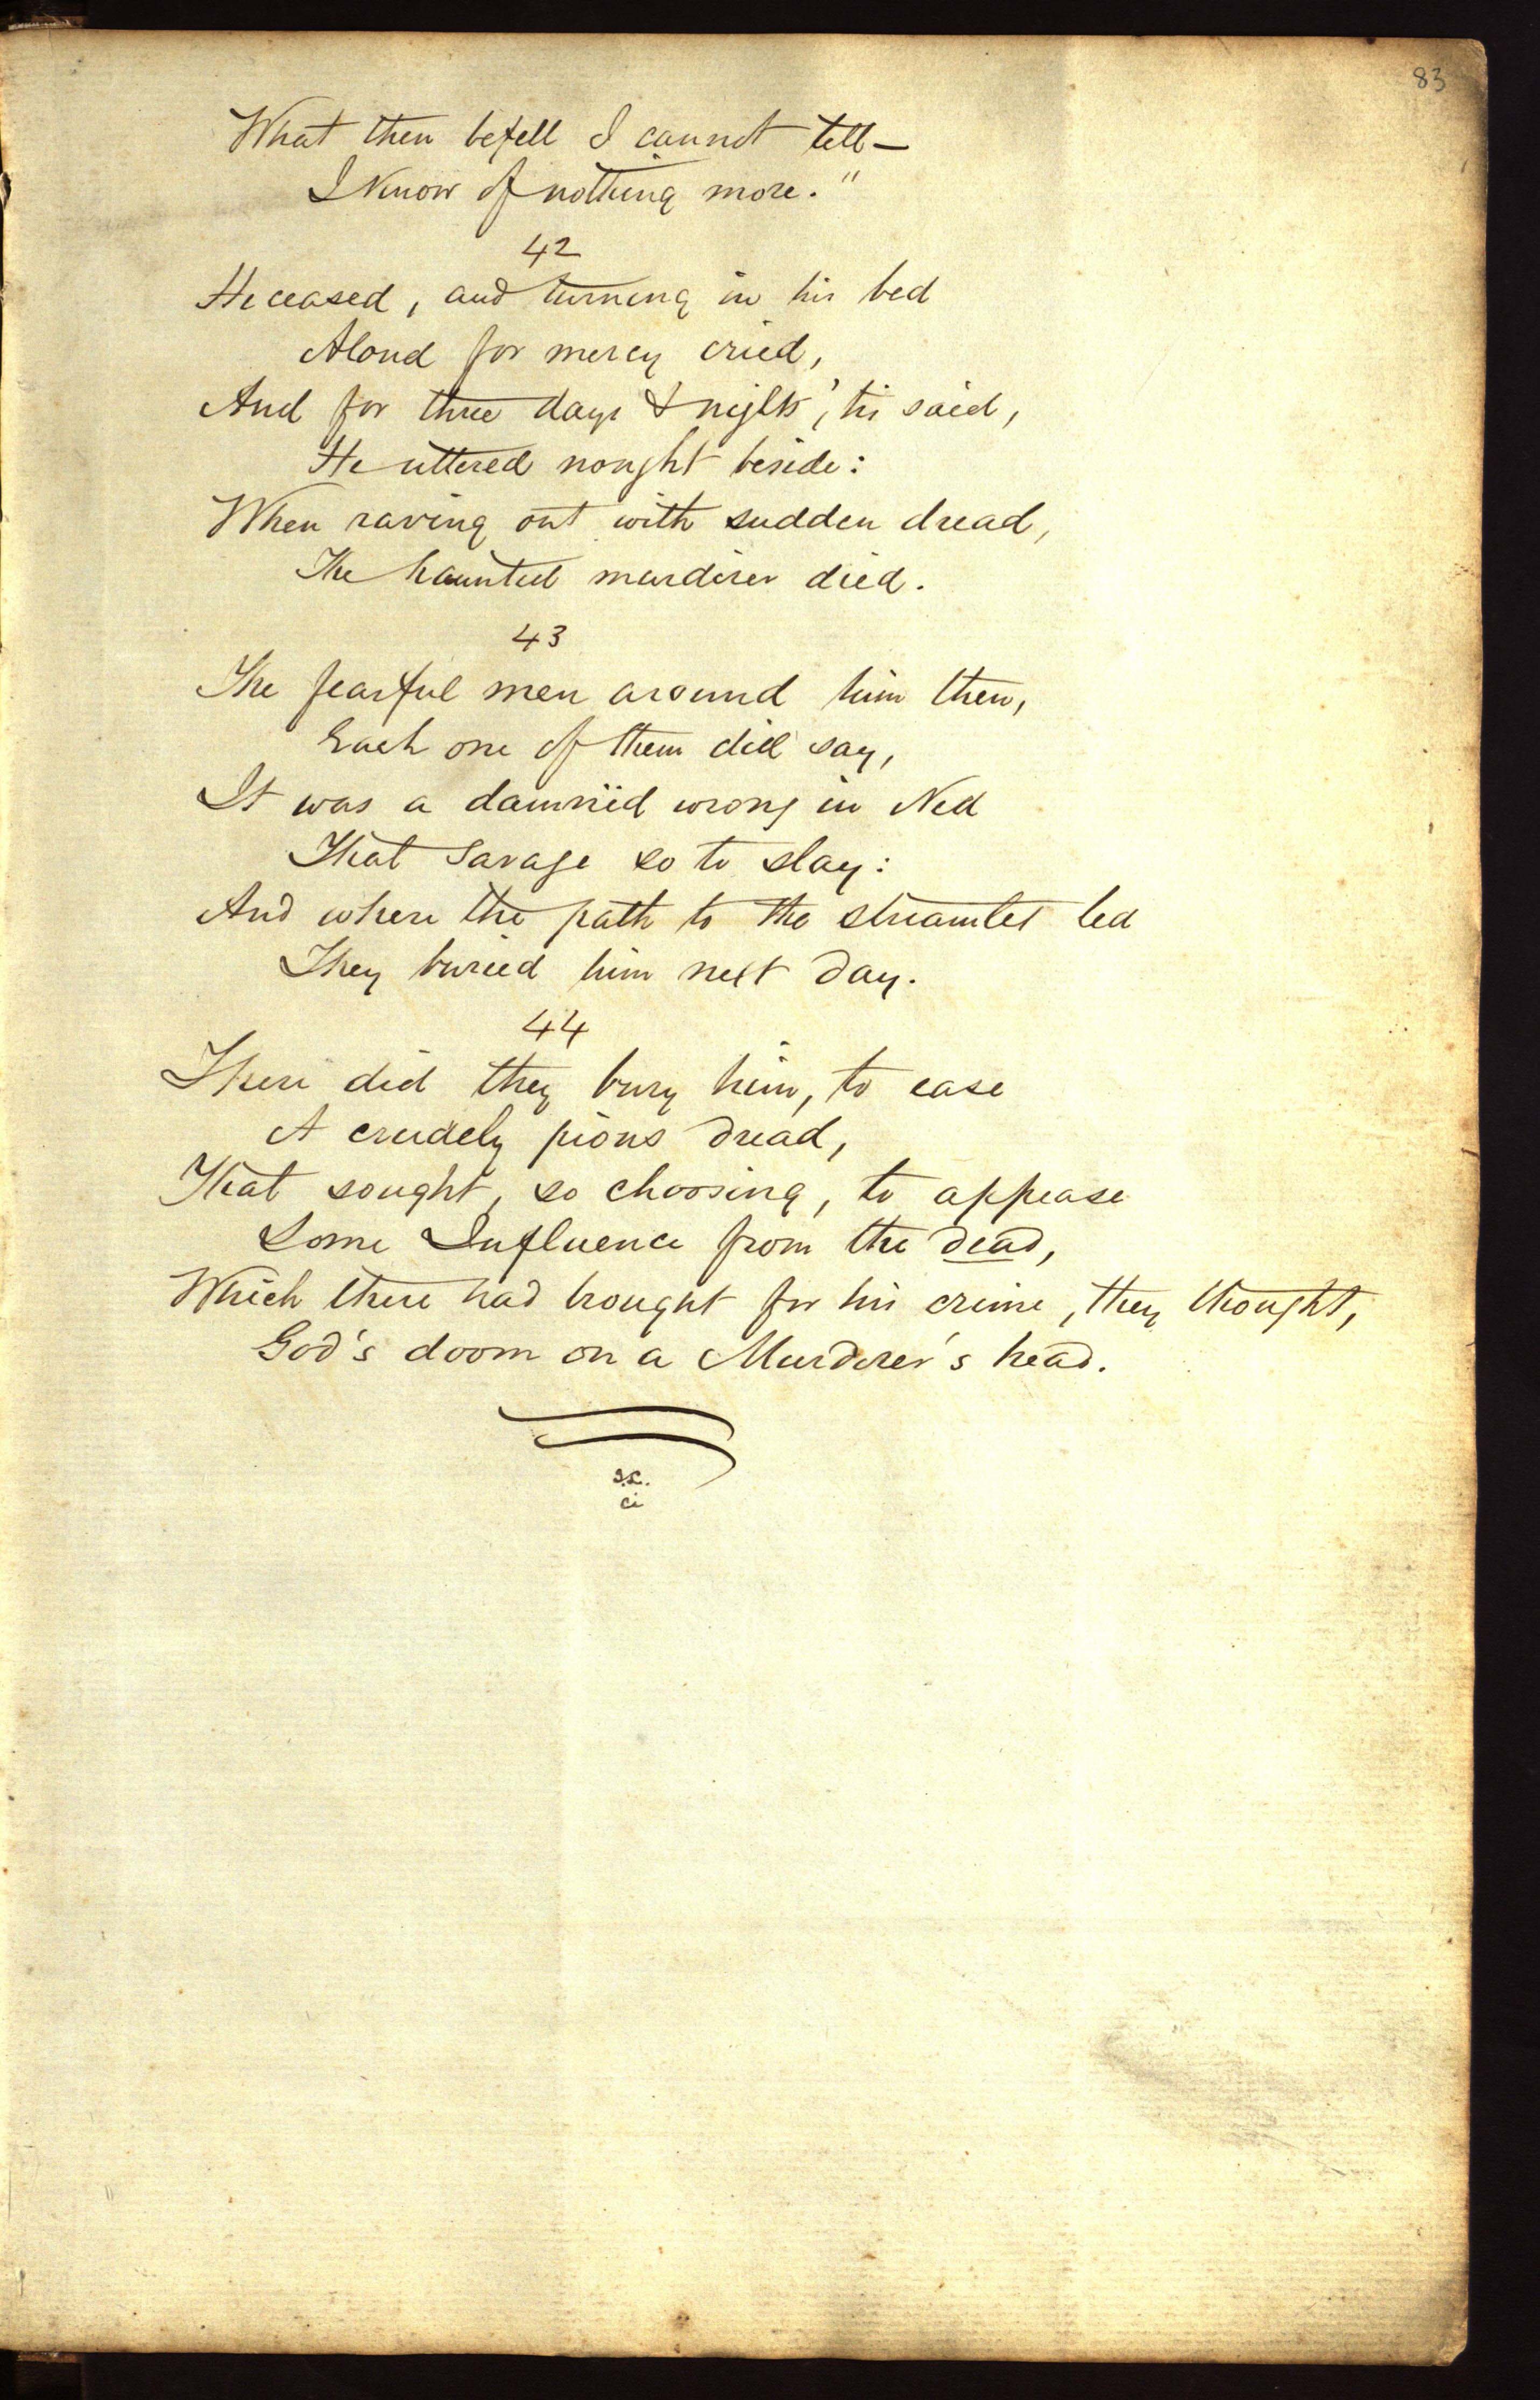 83
What then befell I cannot tell —
I know of nothing more."
42
He ceased, and turning in his bed
Aloud for mercy cried,
And for three days & nights, 'tis said,
He uttered nought beside:
When raving out with sudden dread,
The haunted murderer died.
43
The fearful men around him then,
Each one of them did say,
It was a damnëd wrong in Ned
That Savage so to slay:
And where the path to the streamlet led
They buried him next day.
44
There did they bury him, to ease
A crudely pious dread,
That sought, so choosing, to appease
Some Influence from the dead,
Which there had brought for his crime, they thought,
God's doom on a Murderer's head.